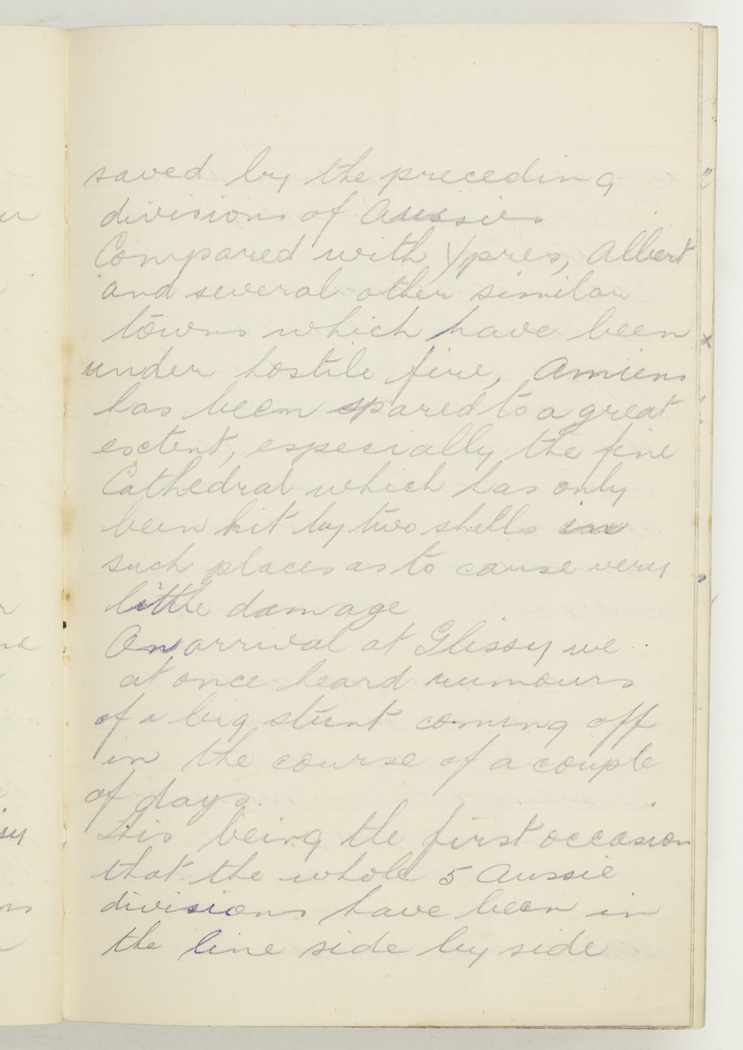 saved by the preceding
divisions of Aussies
Compared with Ypres, Albert
and several other similar
towns which have been
under hostile fire, Amiens
has been spared to a great
esctent, especially the fine
Cathedral which has only
been hit by two shells in
such places as to cause very
little damage
On arrival at Glissy we
at once heard rumours
of a big stunt coming off
in the course of a couple
of days.
This being the first occasion
that the whole 5 Aussie
divisions have been in
the line side by side